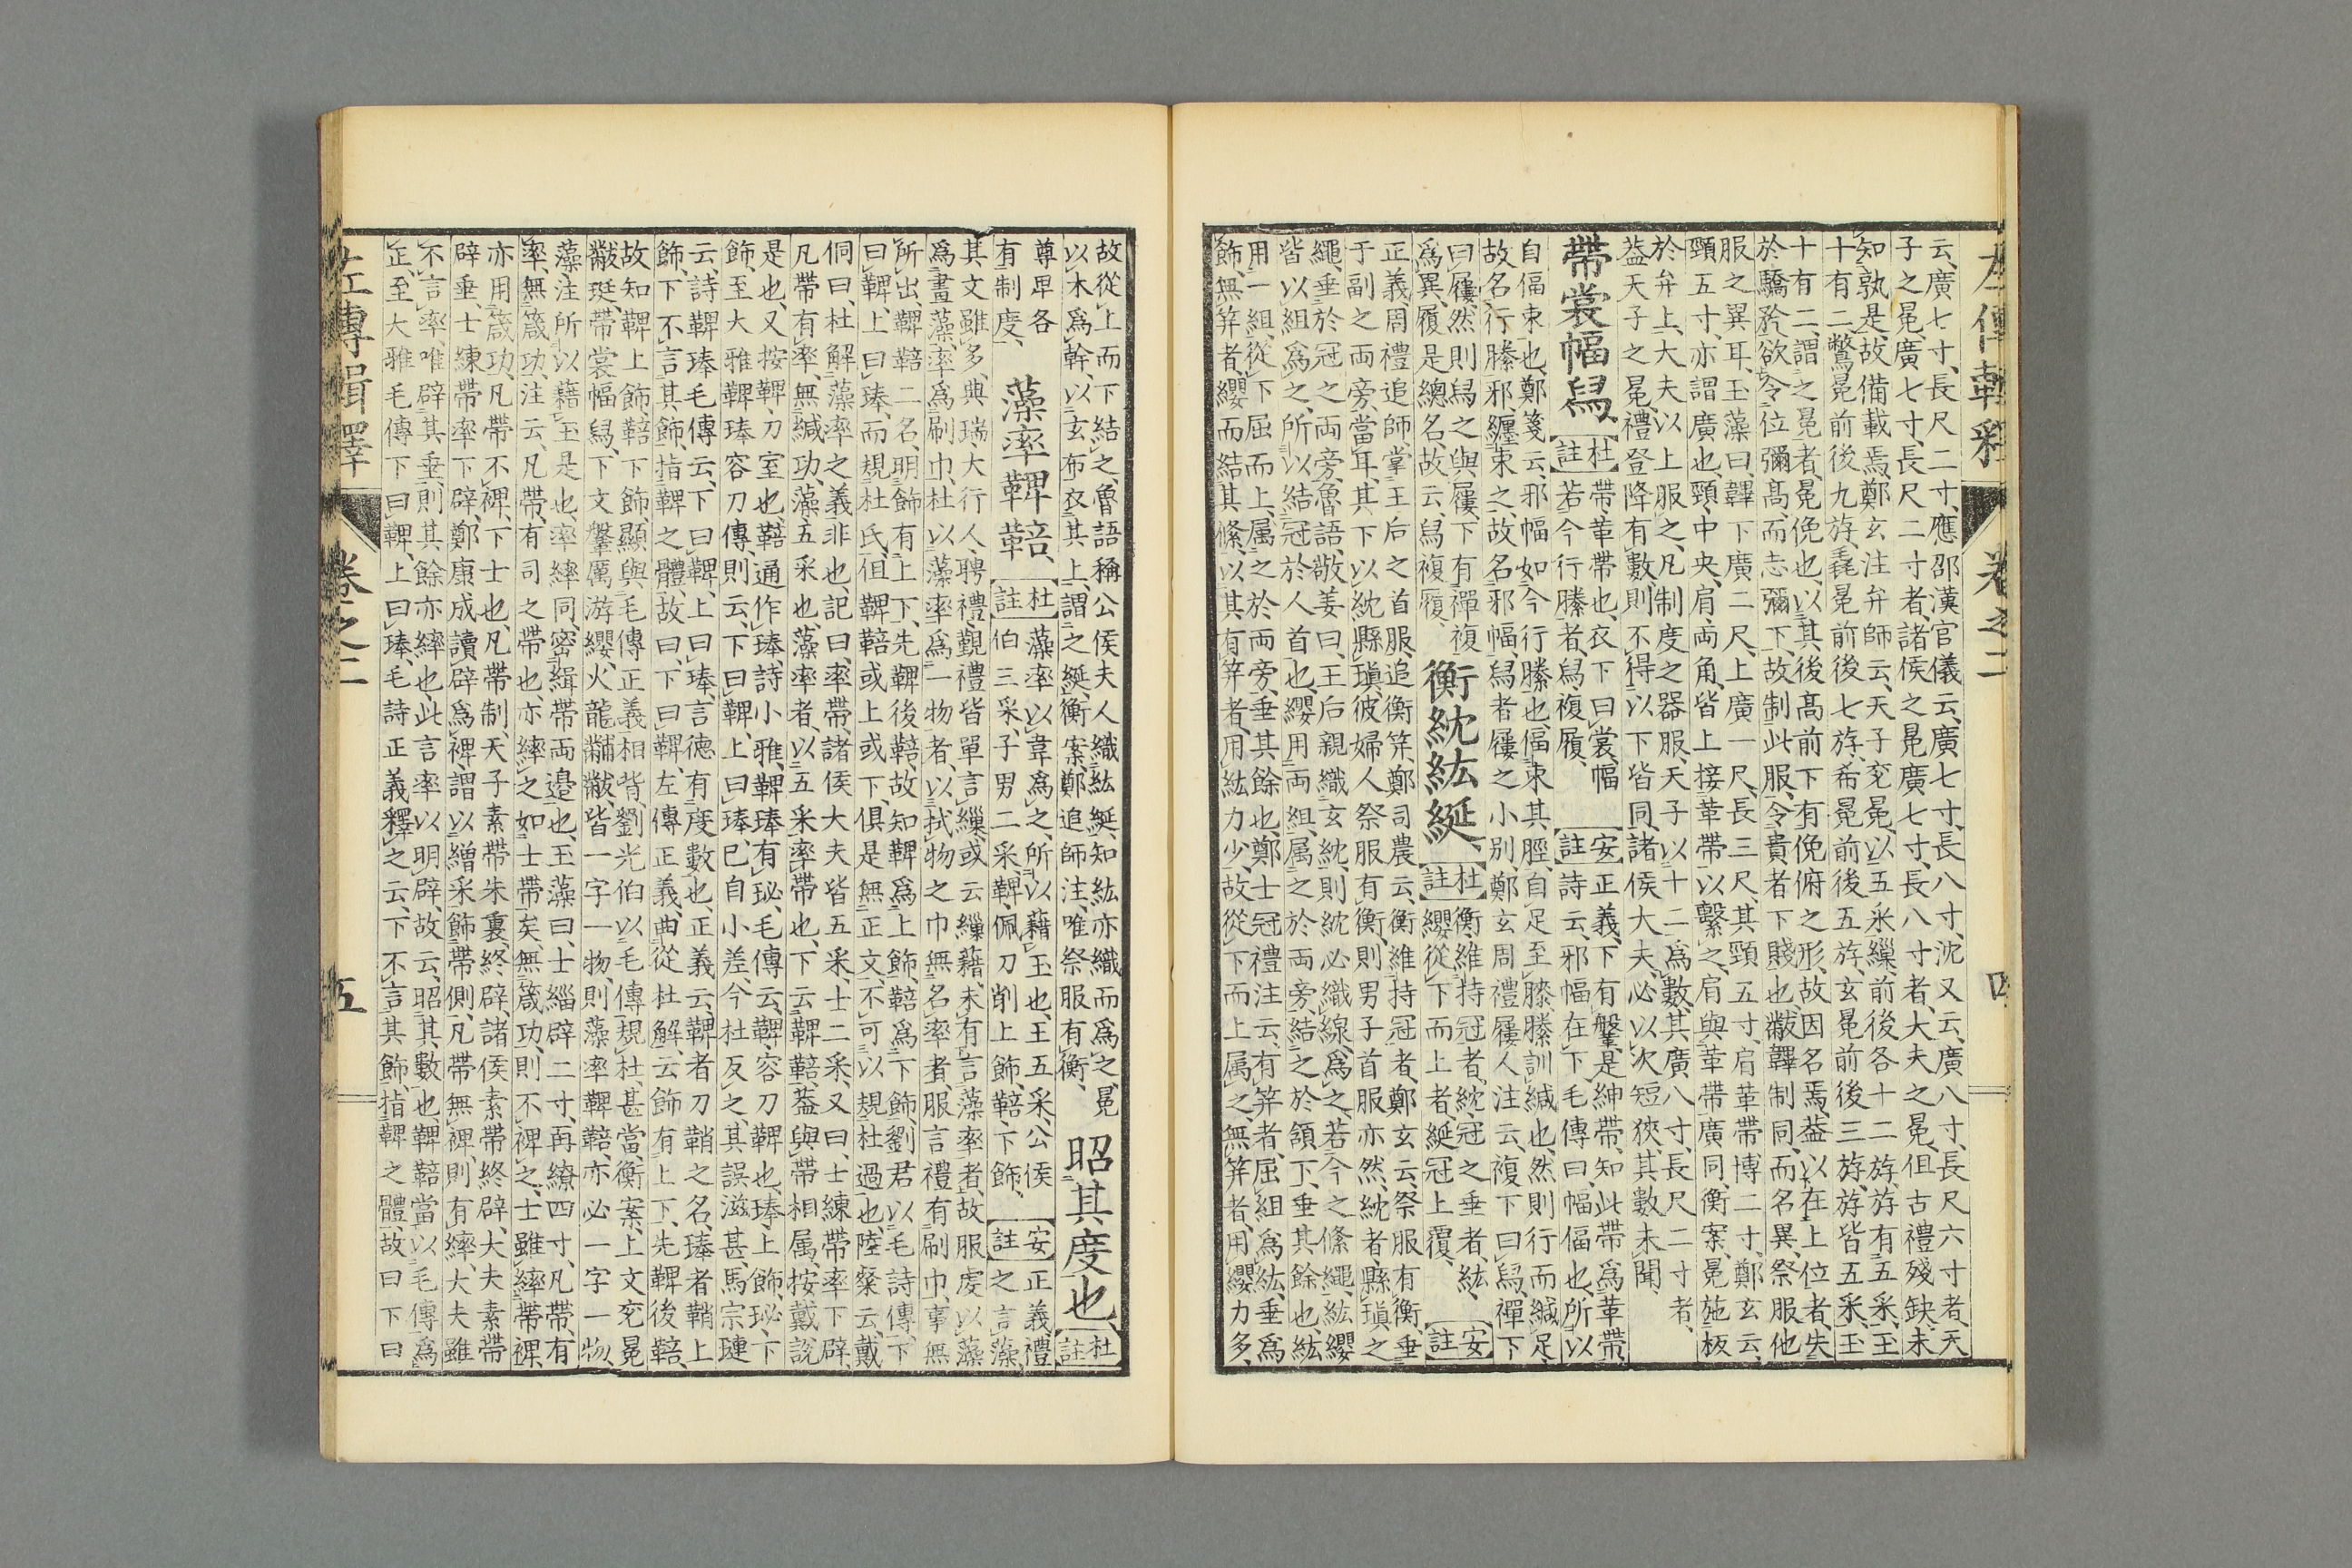 左傳輯釋 卷之二 四
云、廣七寸、長尺二寸、應邵漢官儀云、廣七寸、長八寸、沈又云、廣八寸、長尺六寸者、天
子之冕、廣七寸、長尺二寸者、諸侯之冕、廣七寸、長八寸者、大夫之冕、但古禮殘缺、未
知孰是、故備載焉、鄭玄注弁師云、天子衮冕、以五采繅、前後各十二斿、斿有五采、玉
十有二、鷩冕前後九斿、毳冕前後七斿、希冕前後五斿、玄冕前後三斿、斿皆五采、玉
十有二、謂之冕者、冕俛也、以其後高前下有俛俯之形、故因名焉、蓋以在上位者、失
於驕矜、欲令位彌高、而志彌下、故制此服、令貴者下賤也、黻韠制同、而名異、祭服他
服之異耳、玉藻曰、韠下廣二尺、上廣一尺、長三尺、其頸五寸、肩革帶博二寸、鄭玄云、
頸五寸、亦謂廣也、頸中央、肩兩角、皆上接革帶以繫之、肩與革帶廣同、衡案、冕延板
於弁上、大夫以上服之、凡制度之器服、天子以十二爲數、其廣八寸、長尺二寸者、
蓋天子之冕、禮登降有數、則不得以下皆同、諸侯大夫、必以次短狹、其數未聞、
帶裳幅舄
杜註 帶、革帶也、衣下曰裳、幅
若今行縢者、舄、複履、
安註 正義、下有鞶、是紳帶、知此帶爲革帶、
詩云、邪幅在下、毛傳曰、幅偪也、所以
自偪束也、鄭箋云、邪幅如今行縢也、偪束其脛、自足至膝、縢訓緘也、然則行而緘足、
故名行縢、邪纏束之、故名邪幅、舄者屨之小別、鄭玄周禮屨人注云、複下曰舄、襌下
曰屨、然則舄之與屨、下有襌複
爲異、履是總名、故云、舄複履、
衡紞紘綖、
杜註 衡、維持冠者、紞、冠之垂者、紘、
纓從下而上者、綖、冠上覆、
安註
正義、周禮追師、掌王后之首服、追衡笄、鄭司農云、衡維持冠者、鄭玄云、祭服有衡、垂
于副之兩旁、當耳、其下以紞縣瑱、彼婦人祭服有衡、則男子首服亦然、紞者、縣瑱之
繩、垂於冠之兩旁、魯語、敬姜曰、王后親織玄紞、則紞必織線爲之、若今之絛繩、紘纓
皆以組爲之、所以結冠於人首也、纓用兩組、属之於兩旁、結之於頷下、垂其餘也、紘
用一組、從下屈而上、属之於兩旁、垂其餘也、鄭士冠禮注云、有笄者、屈組爲紘、垂爲
飾、無笄者、纓而結其絛、以其有笄者、用紘力少、故從下而上属之、無笄者、用纓力多、
故從上而下結之、魯語稱公侯夫人織紘綖、知紘亦織而爲之、冕
以木爲幹、以玄布衣其上、謂之綖、衡案、鄭追師注、唯祭服有衡、
昭其度也、
杜註
尊卑各
有制度、
藻率鞞鞛、
杜註 藻率、以韋爲之、所以藉玉也、王五采、公侯
伯三采、子男二采、鞞、佩刀削上飾、鞛、下飾、
安註 正義、禮
之言藻、
其文雖多、典瑞大行人、聘禮覲禮皆單言繅、或云繅藉、未有言藻率者、故服虔以藻
爲畫藻、率爲刷巾、杜以藻率爲一物者、以拭物之巾無名率者、服言禮有刷巾、事無
所出、鞞鞛二名、明飾有上下、先鞞後鞛、故知鞞爲上飾、鞛爲下飾、劉君以毛詩傳、下
曰鞞、上曰琫、而規杜氏、但鞞鞛或上或下、俱是無正文、不可以規杜過也、陸粲云、戴
侗曰、杜解藻率之義非也、記曰、率帶、諸侯大夫皆五采、士二采、又曰、士練帶率下辟、
凡帶有率、無緘功、藻五采也、藻率者、以五采率帶也、下云、鞞鞛、蓋與帶相属、按戴說
是也、又按、鞞、刀室也、鞛通作琫、詩小雅、鞞琫有珌、毛傳云、鞞、容刀鞞也、琫、上飾、珌、下
飾、至大雅鞞琫容刀傳、則云、下曰鞞、上曰琫、已自小差、今杜反之、其誤滋甚、馬宗璉
云、詩鞞琫毛傳云、下曰鞞、上曰琫、言德有度數也、正義云、鞞者刀鞘之名、琫者鞘上
飾、下不言其飾、指鞞之體、故曰下曰鞞、左傳正義、曲從杜解、云飾有上下、先鞞後鞛、
故知鞞上飾、鞛下飾、顯與毛傳正義相背、劉光伯以毛傳規杜、甚當、衡案、上文衮冕
黻珽帶裳幅舄、下文鞶厲游纓、火龍黼黻、皆一字一物、則藻率鞞鞛、亦必一字一物、
藻注所以藉玉是也、率繂同、密緝帶兩邉也、玉藻曰、士緇辟二寸、再繚四寸、凡帶、有
率、無箴功、注云、凡帶、有司之帶也、亦繂之如士帶矣、無箴功、則不裨之、士雖繂帶裨、
亦用箴功、凡帶不裨、下士也、凡帶制、天子素帶朱裏、終辟、諸侯素帶終辟、大夫素帶
辟垂、士練帶率下辟、鄭康成讀辟爲裨、謂以繒采飾帶側、凡帶無裨、則有繂、大夫雖
不言率、唯辟其垂、則其餘亦繂也、此言率以明辟、故云、昭其數也、鞞鞛當以毛傳爲
正、至大雅毛傳下曰鞞、上曰琫、毛詩正義釋之云、下不言其飾、指鞞之體、故曰下曰
左傳輯釋 卷之二 五